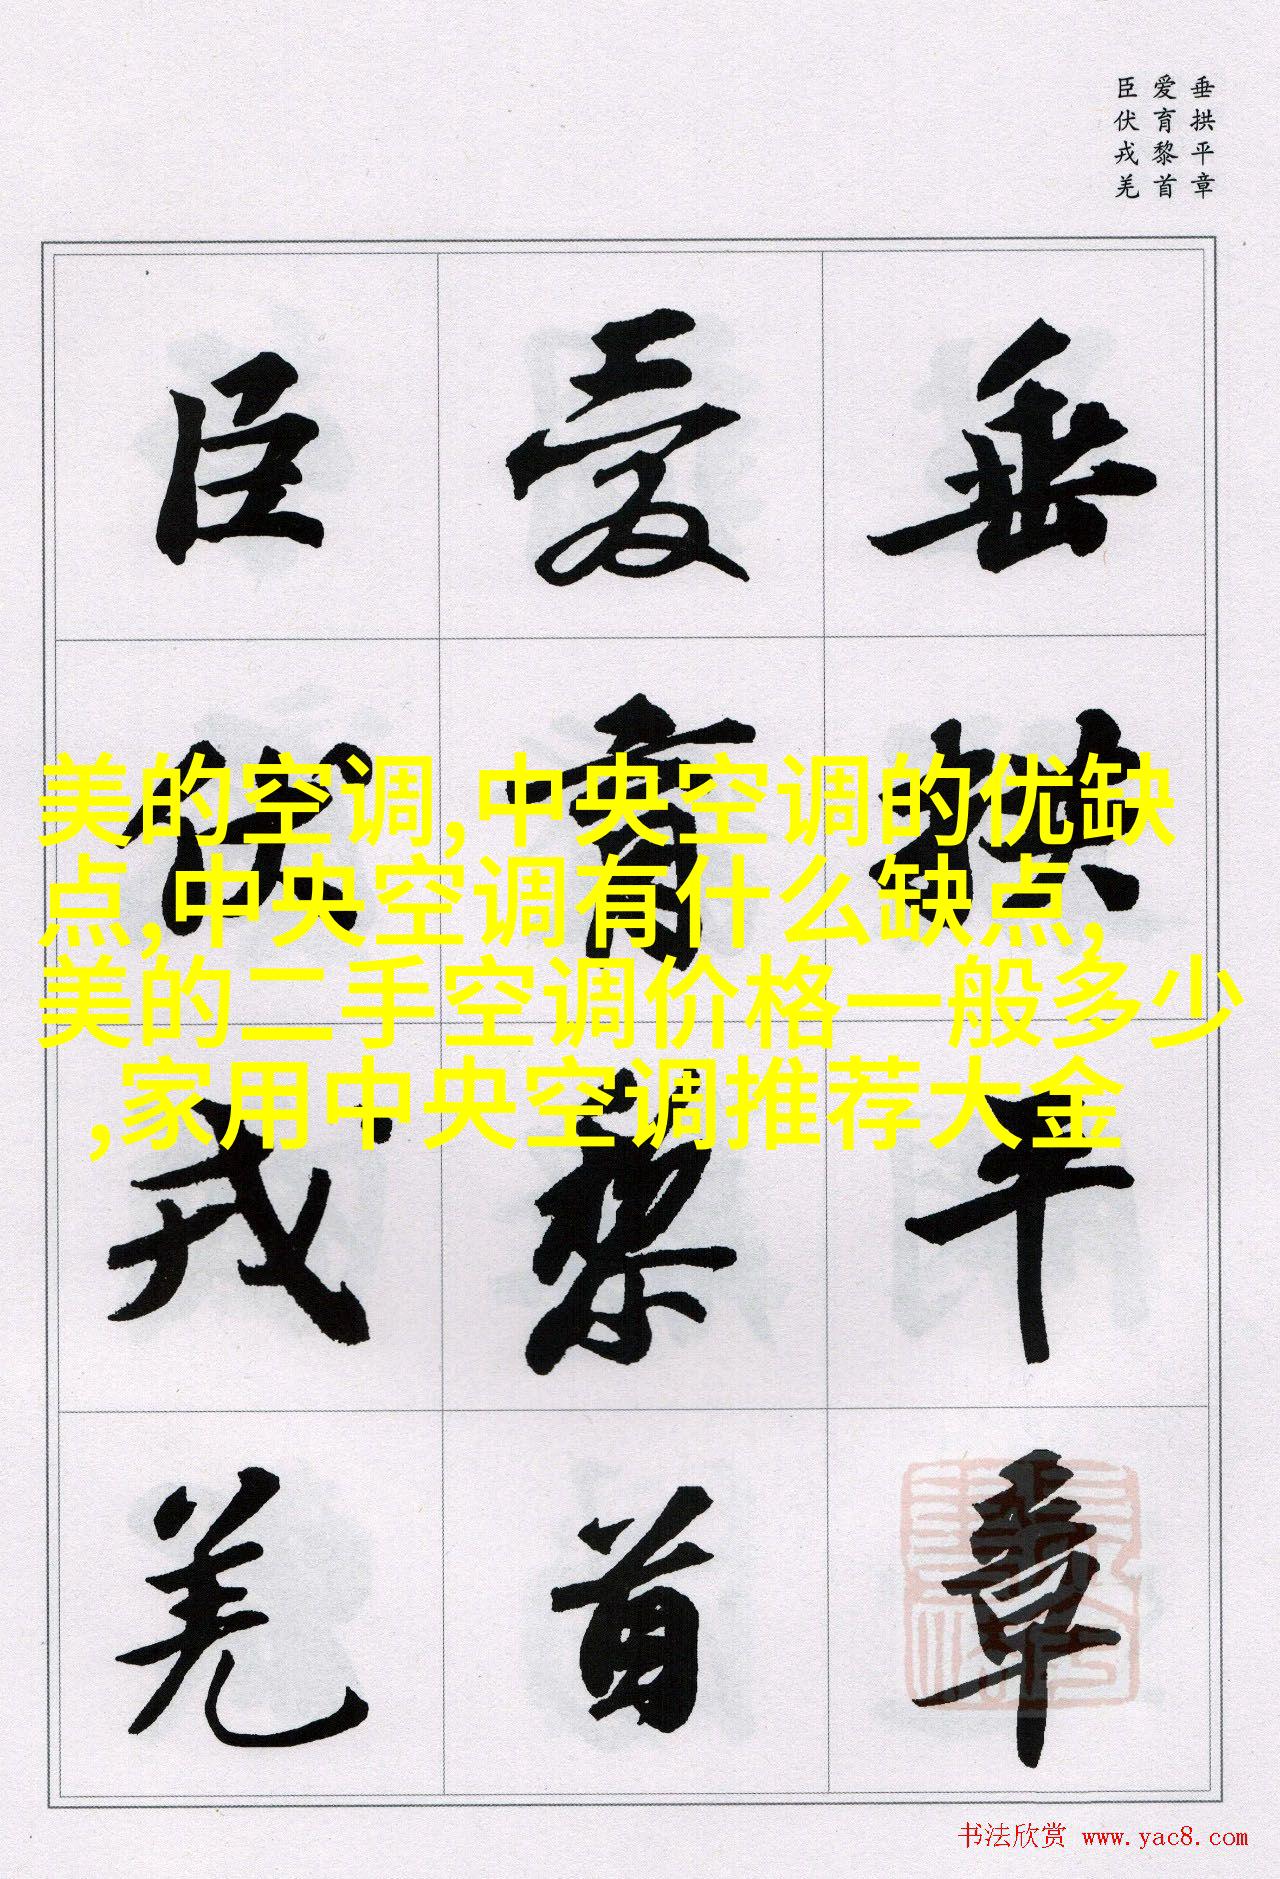 垂拱平章
爱育黎首
臣伏戎羌
垂拱平章
爱育黎首
臣伏戎羌
美的空调,中央空调的优缺
点,中央空调有什么缺点,
美的二手空调价格一般多少
,家用中央空调推荐大金
书法欣赏 www.yac8.com